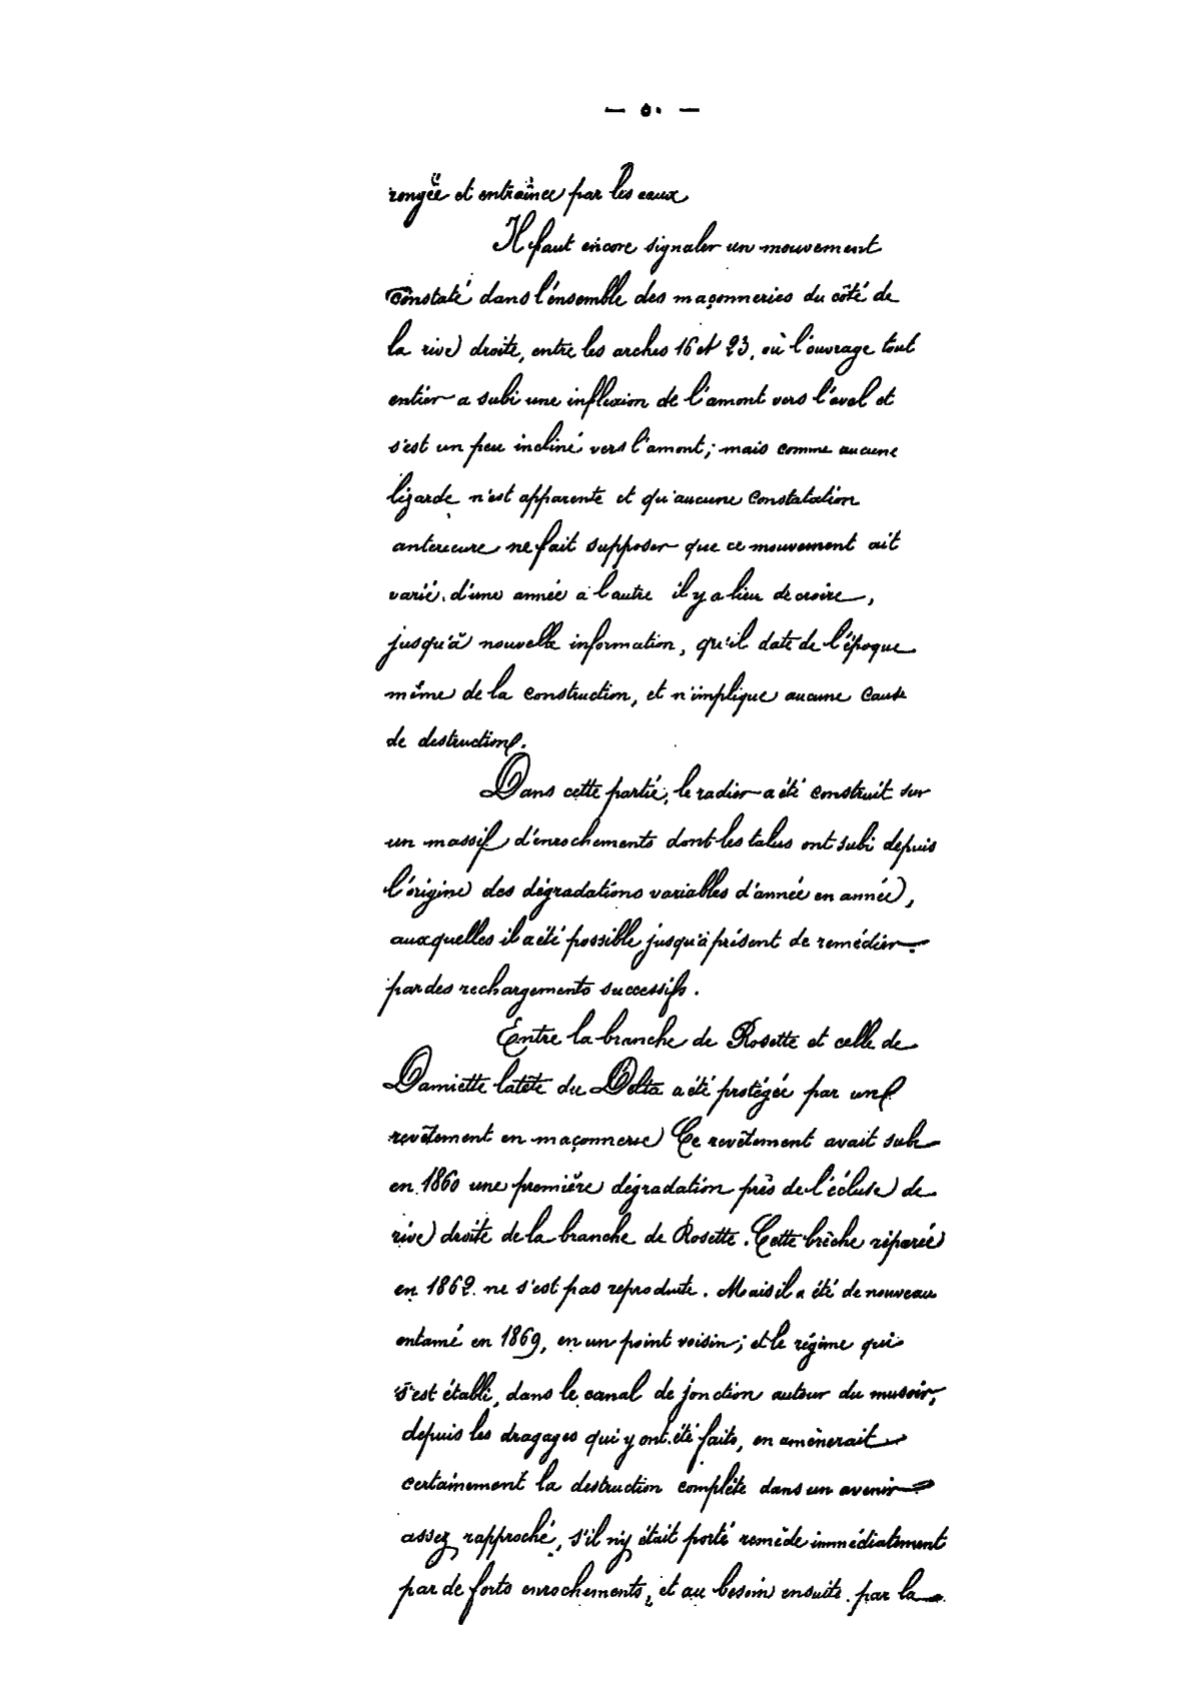 rongée et entraînée par les eaux
Il faut encore signaler un mouvement
constaté dans l'énsemble des maçonneries du côté de
la rive droite, entre les arches 16 et 23, où l'ouvrage tout
entier a subi une inflexion de l'amont vers l'aval et
s'est un peu incliné vers l'amont; mais comme aucune
lizarde n'est apparente et qu'aucune constatation
anterieure ne fait supposer que ce mouvement ait
varié d'une année à l'autre il y a lieu de croire,
jusqu'à nouvelle information, qu'il date de l'époque
même de la construction, et n'implique aucune cause
de destruction.
Dans cette partie, le radier a été construit sur
un massif d'enrochements dont les talus ont subi depuis
l'origine des dégradations variables d'année en année,
auxquelles il a été possible jusqu'à présent de remédier
par des rechargements successifs.
Entre la branche de Rosette et celle de
Damiette la tête du Delta a été protégée par un
revêtement en maçonnerie Ce revêtement avait subi
en 1860 une première dégradation près de l'écluse de
rive droite de la branche de Rosette. Cette brèche réparée
en 1862 ne s'est pas reproduite. Mais il a été de nouveau
entamé en 1869, en un point voisin; et le régime qui
s'est établi, dans le canal de jonction autour du musoir,
depuis les dragages qui y ont été faits, en amènerait
certainement la destruction complète dans un avenir
assez rapproché, s'il n'y était porté remède immédiatement
par de forts enrochements, et au besoin ensuite par la